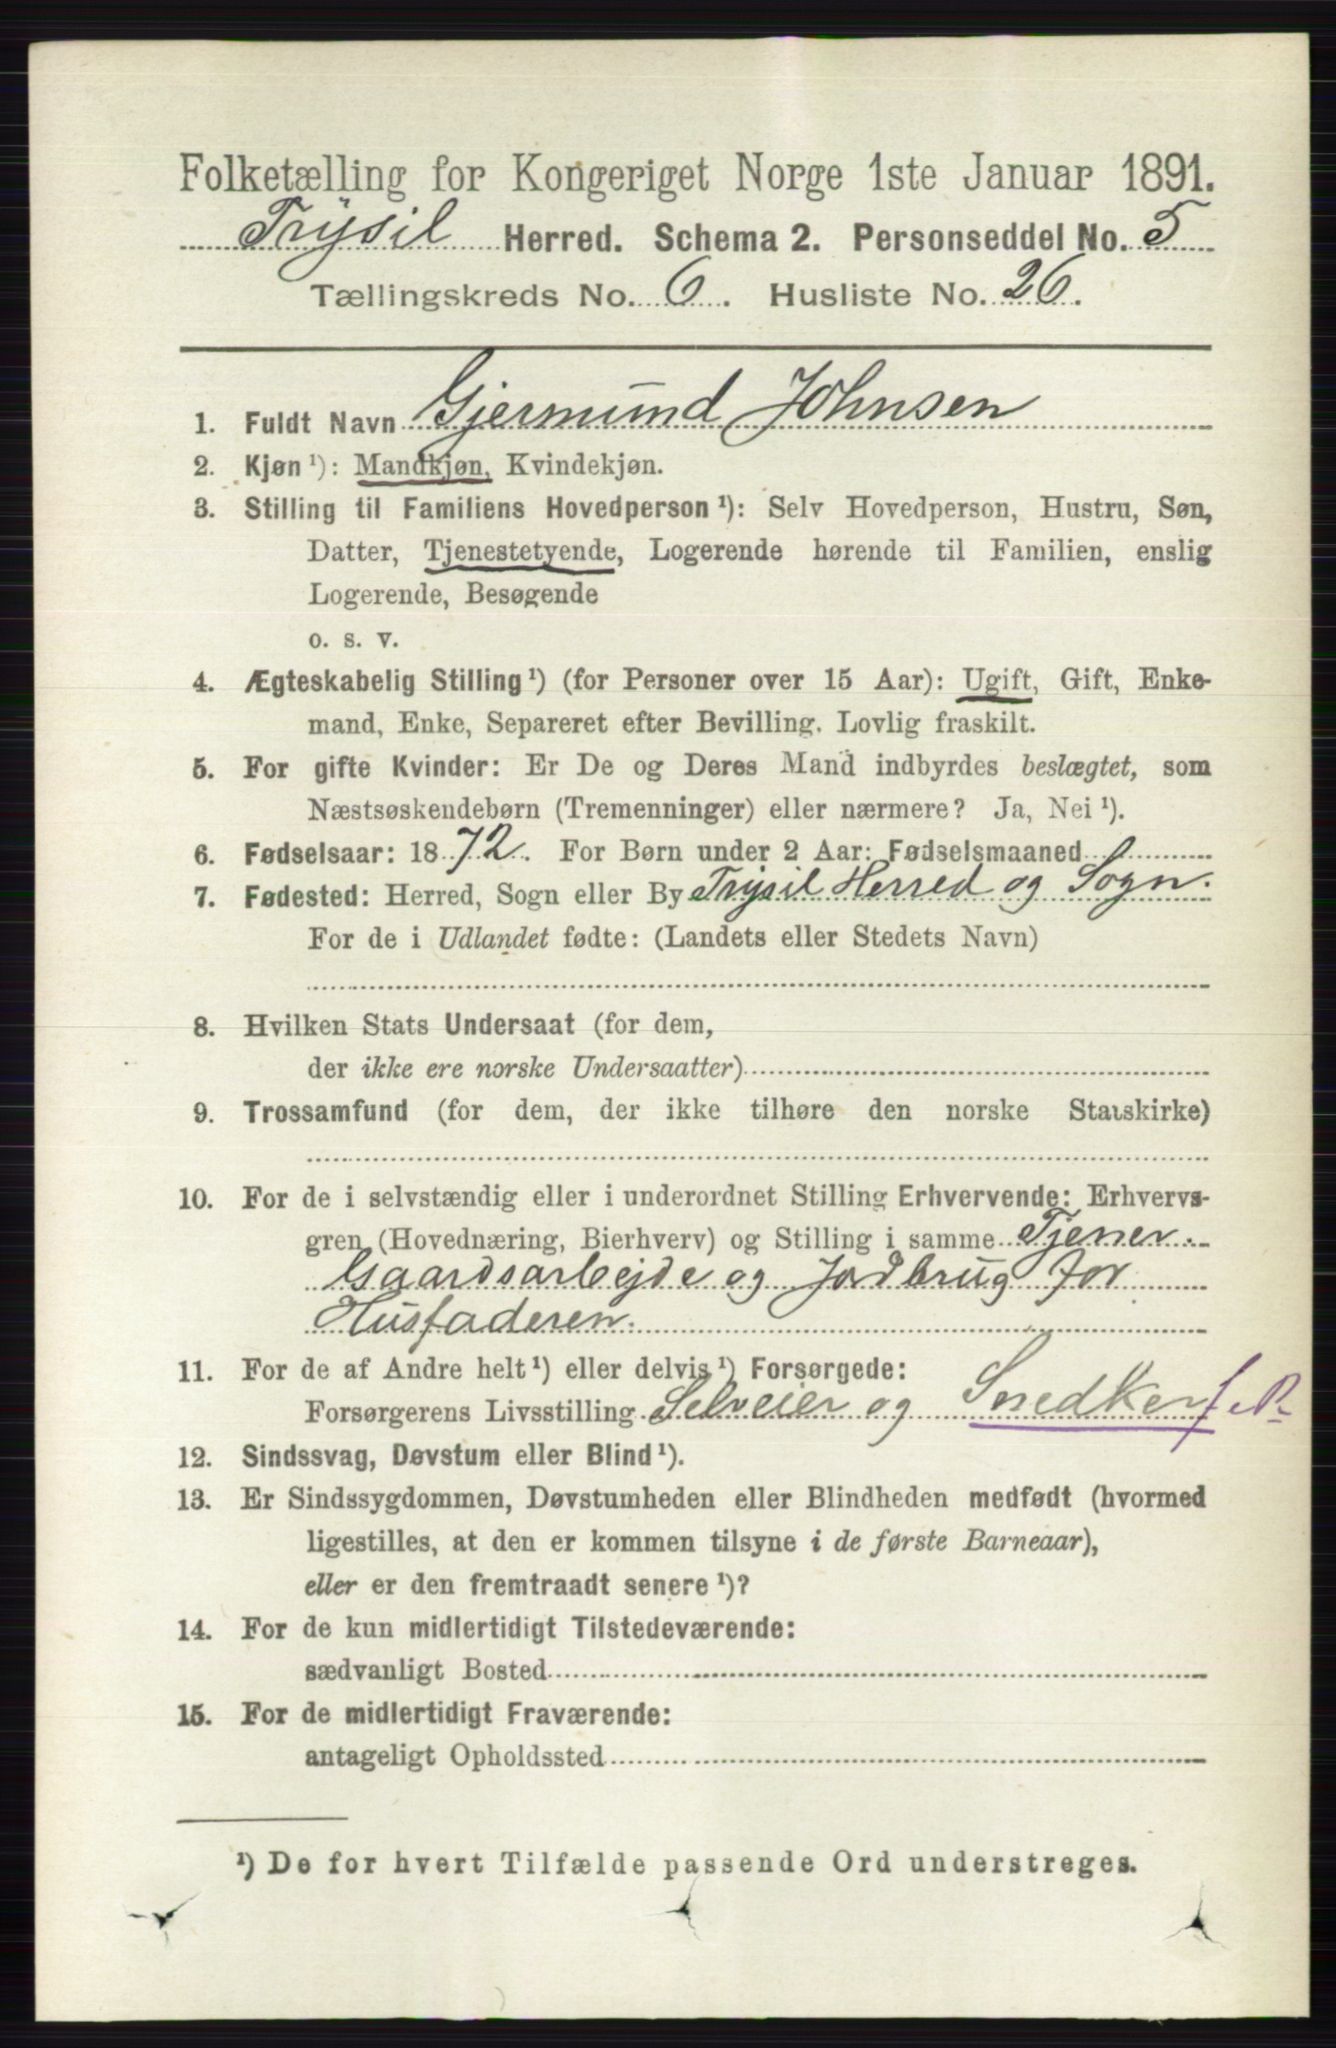 Folketælling for Kongeriget Norge 1ste Januar 1891.
Trysil Herred. Schema 2. Personseddel No. 5
Tællingskreds No. 6. Husliste No. 26.
1. Fuldt Navn Gjermund Johnsen
2. Kjøn ¹): Mandkjøn, Kvindekjøn.
3. Stilling til Familiens Hovedperson ¹): Selv Hovedperson, Hustru, Søn,
Datter, Tjenestetyende, Logerende hørende til Familien, enslig
Logerende, Besøgende
o. s. v.
4. Ægteskabelig Stilling ¹) (for Personer over 15 Aar): Ugift, Gift, Enke-
mand, Enke, Separeret efter Bevilling. Lovlig fraskilt.
5. For gifte Kvinder: Er De og Deres Mand indbyrdes beslægtet, som
Næstsøskendebørn (Tremenninger) eller nærmere? Ja, Nei ¹).
6. Fødselsaar: 1872. For Børn under 2 Aar: Fødselsmaaned
7. Fødested: Herred, Sogn eller By Trysil Herred og Sogn.
For de i Udlandet fødte: (Landets eller Stedets Navn)
8. Hvilken Stats Undersaat (for dem,
der ikke ere norske Undersaatter)
9. Trossamfund (for dem, der ikke tilhøre den norske Statskirke)
10. For de i selvstændig eller i underordnet Stilling Erhvervende: Erhvervs-
gren (Hovednæring, Bierhverv) og Stilling i samme Tjener.
Gaardsarbejde og Jordbrug for
Husfaderen.
11. For de af Andre helt ¹) eller delvis ¹) Forsørgede:
Forsørgerens Livsstilling Selveier og Snedker
12. Sindssvag, Døvstum eller Blind ¹).
13. Er Sindssygdommen, Døvstumheden eller Blindheden medfødt (hvormed
ligestilles, at den er kommen tilsyne i de første Barneaar),
eller er den fremtraadt senere ¹)?
14. For de kun midlertidigt Tilstedeværende:
sædvanligt Bosted
15. For de midlertidigt Fraværende:
antageligt Opholdssted
¹) De for hvert Tilfælde passende Ord understreges.